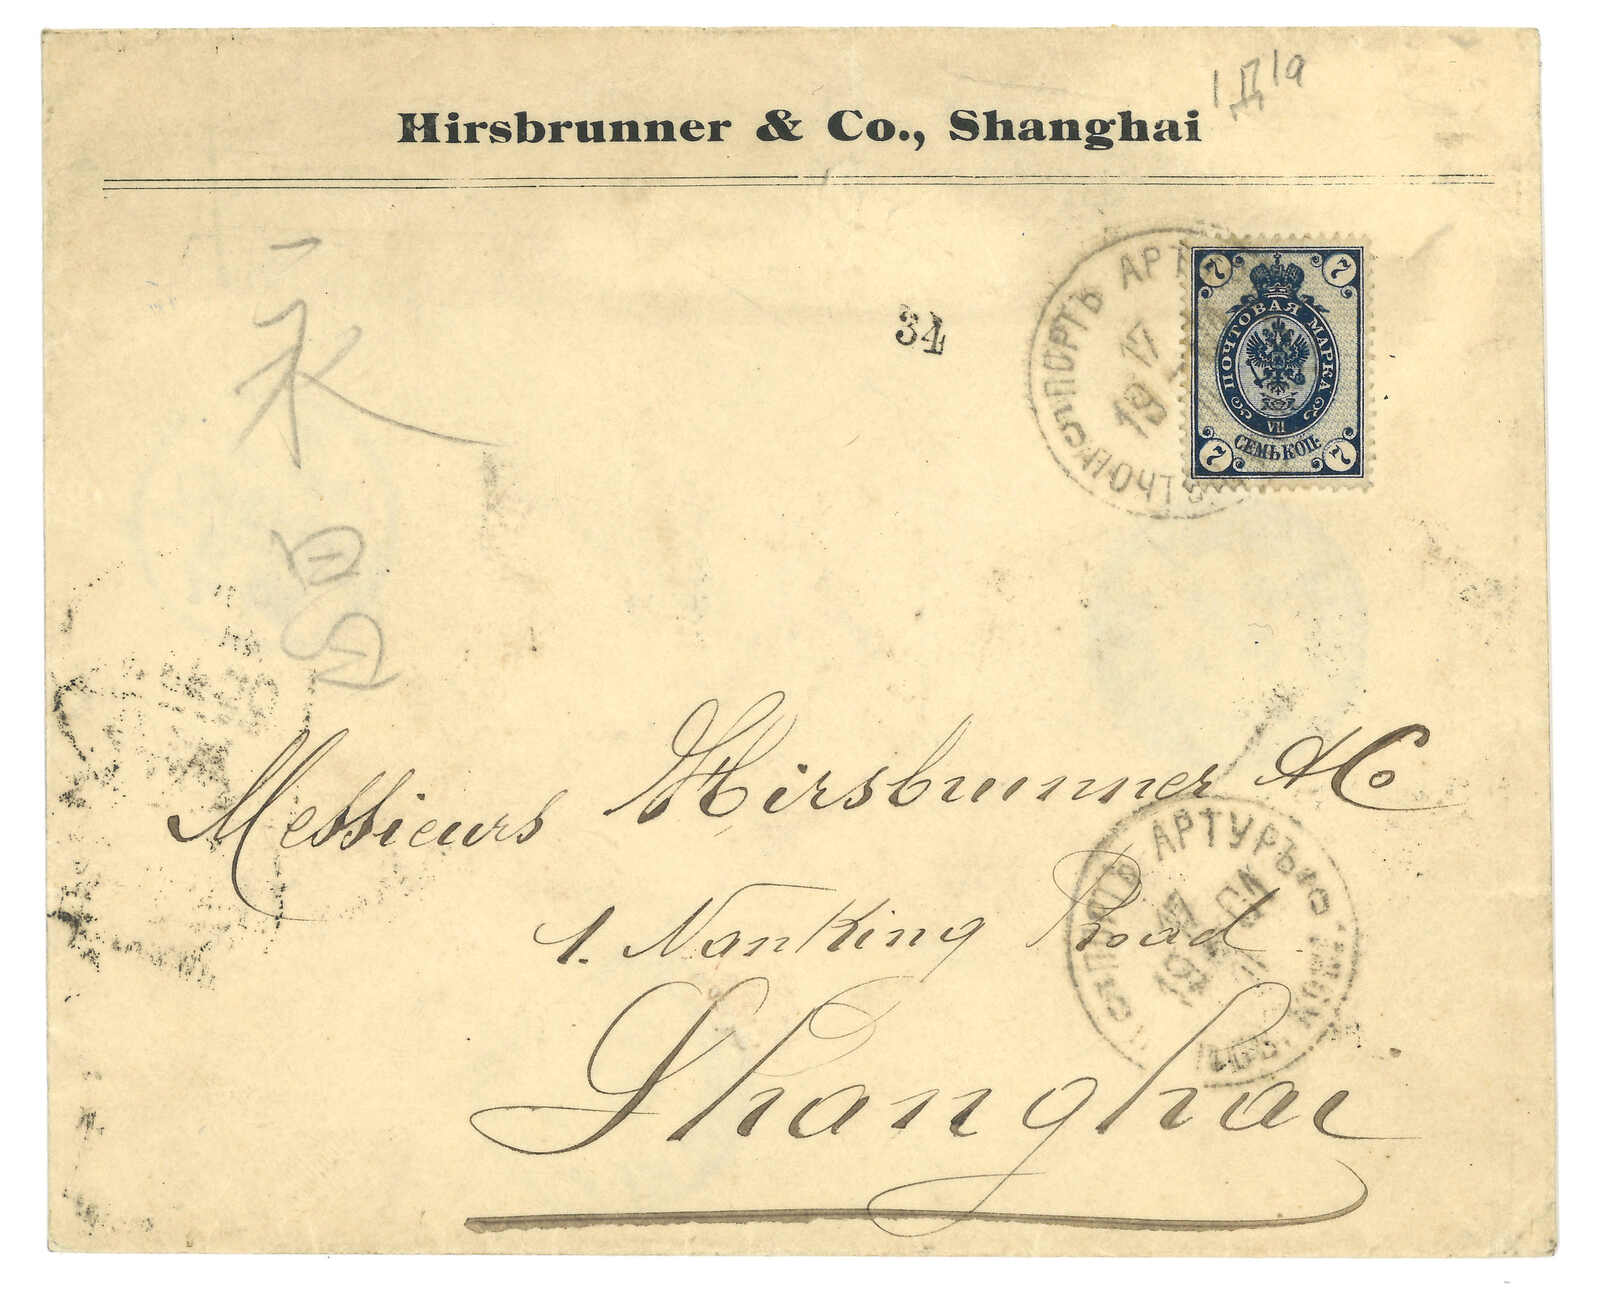 Hirsbrunner & Co., Shanghai
永
昌
34
ПОРТЪ АРТ
17
19
7 7
ПОЧТОВАЯ МАРКА
VII
СЕМЬ КОП:
7 7
Messieurs Hirsbrunner & Co
1. Nanking Road
Shanghai
АРТУРЪ
17
19